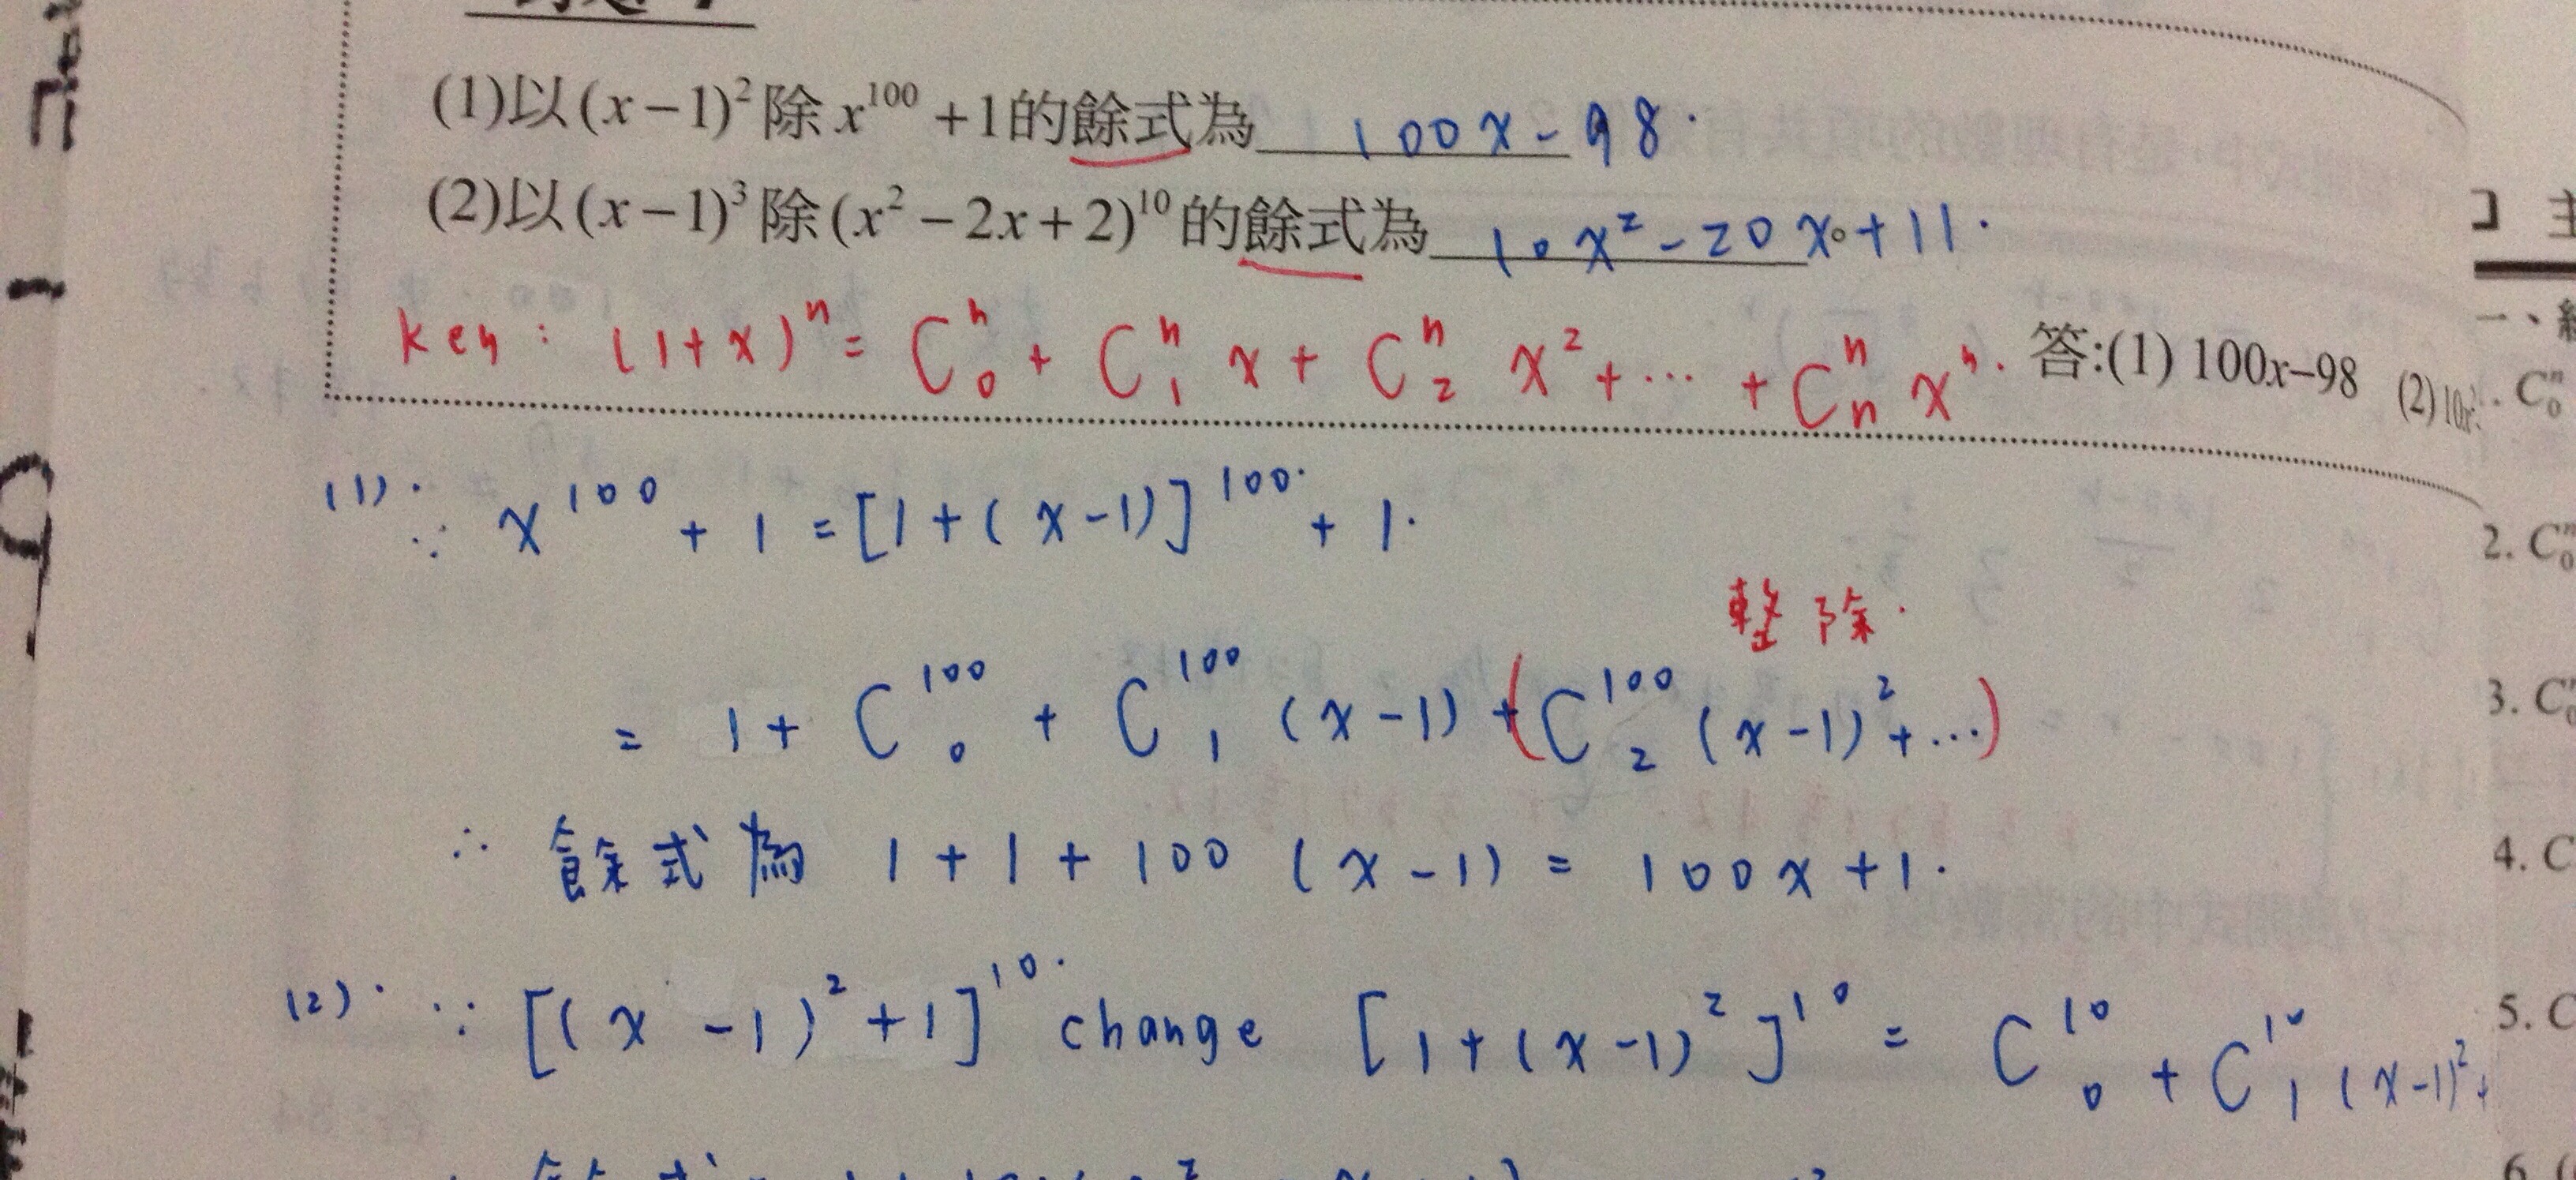 (1)以(x−1)²除x¹⁰⁰+1的餘式為 100x-98.
(2)以(x−1)³除(x²−2x+2)¹⁰的餘式為 10x²-20x+11.。
key : (1+x)ⁿ = Cⁿ₀ + Cⁿ₁ x + Cⁿ₂ x² + ... + Cⁿₙ xⁿ.
答:(1) 100x–98 (2)
(1) ∵ x¹⁰⁰ + 1 = [1+(x-1)]¹⁰⁰ + 1.
整除.
= 1 + C¹⁰⁰₀ + C¹⁰⁰₁ (x-1) + (C¹⁰⁰₂ (x-1)² + ...)
∴ 餘式為 1+1+100 (x-1) = 100x+1.
(2) ∵ [(x-1)²+1]¹⁰ change [1+(x-1)²]¹⁰ = C¹⁰₀ + C¹⁰₁ (x-1)² +
主
一、
Cⁿ₀
2. Cⁿ₀
3. Cⁿ₀
4. C
5. C
6.